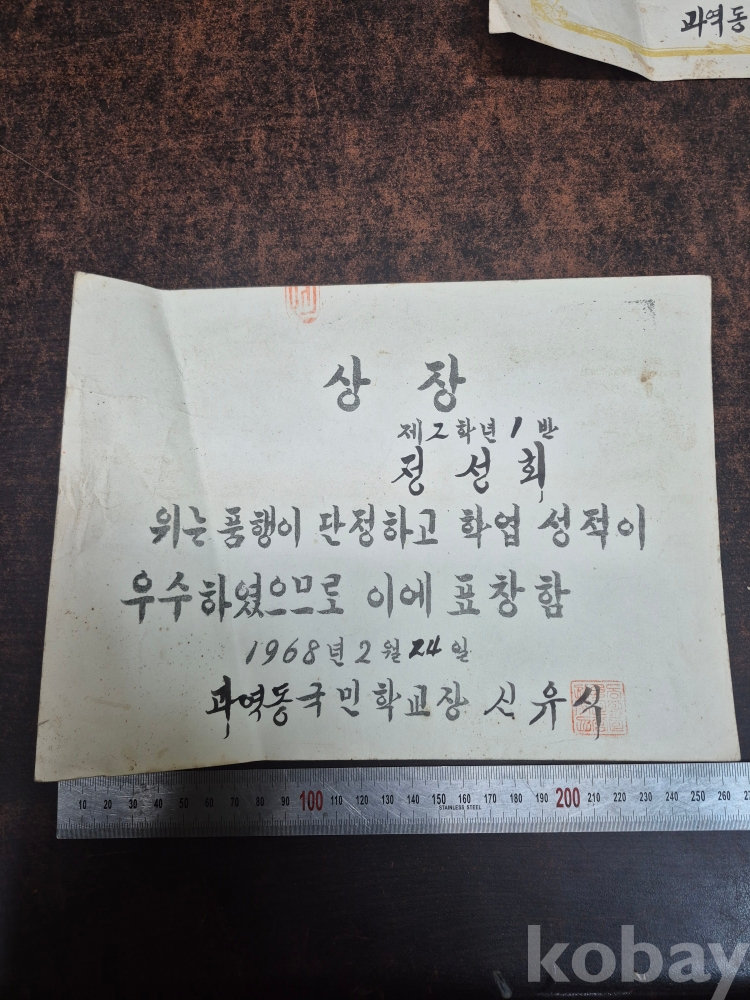 과역동
상 장
제2학년 1반
정성회
위는 품행이 단정하고 학업 성적이
우수하였으므로 이에 표창함
1968년 2월 24일
과역동국민학교장 신유식
10 20 30 40 50 60 70 80 90 100 110 120 130 140 150 160 170 180 190 200 210 220 230 240 250 260
STAINLESS STEEL
kobay